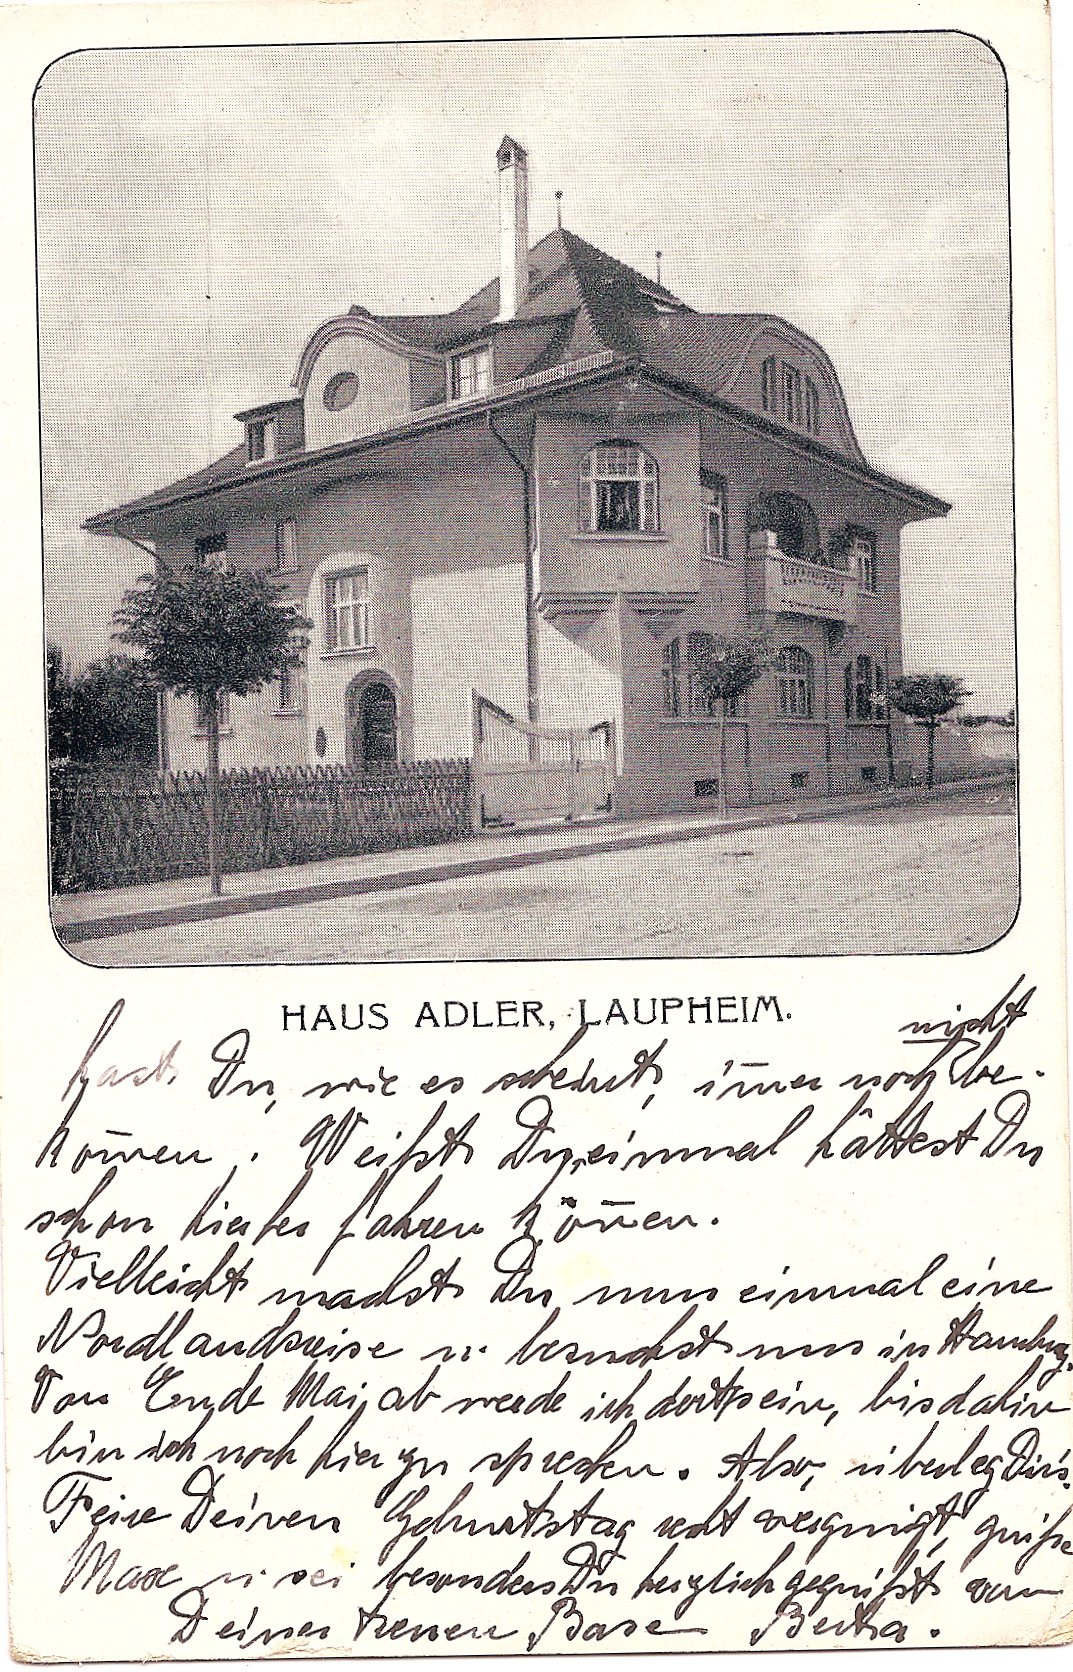 HAUS ADLER, LAUPHEIM.
nicht
hast Du, wie es scheint, im̄er noch be-
kom̄en. Weißt Du, einmal hättest Du
schon hierher fahren kön̄en.
Vielleicht machst Du nun einmal eine
Nordlandsreise u. besuchst uns in Hamburg.
Von Ende Mai ab werde ich dort sein, bis dahin
bin ich noch hier zu sprechen. Also, überleg Dir's.
Feire Deinen Geburtstag recht vergnügt, grüße
Max u. sei besonders Du herzlich gegrüßt von
Deiner treuen Base Berta.